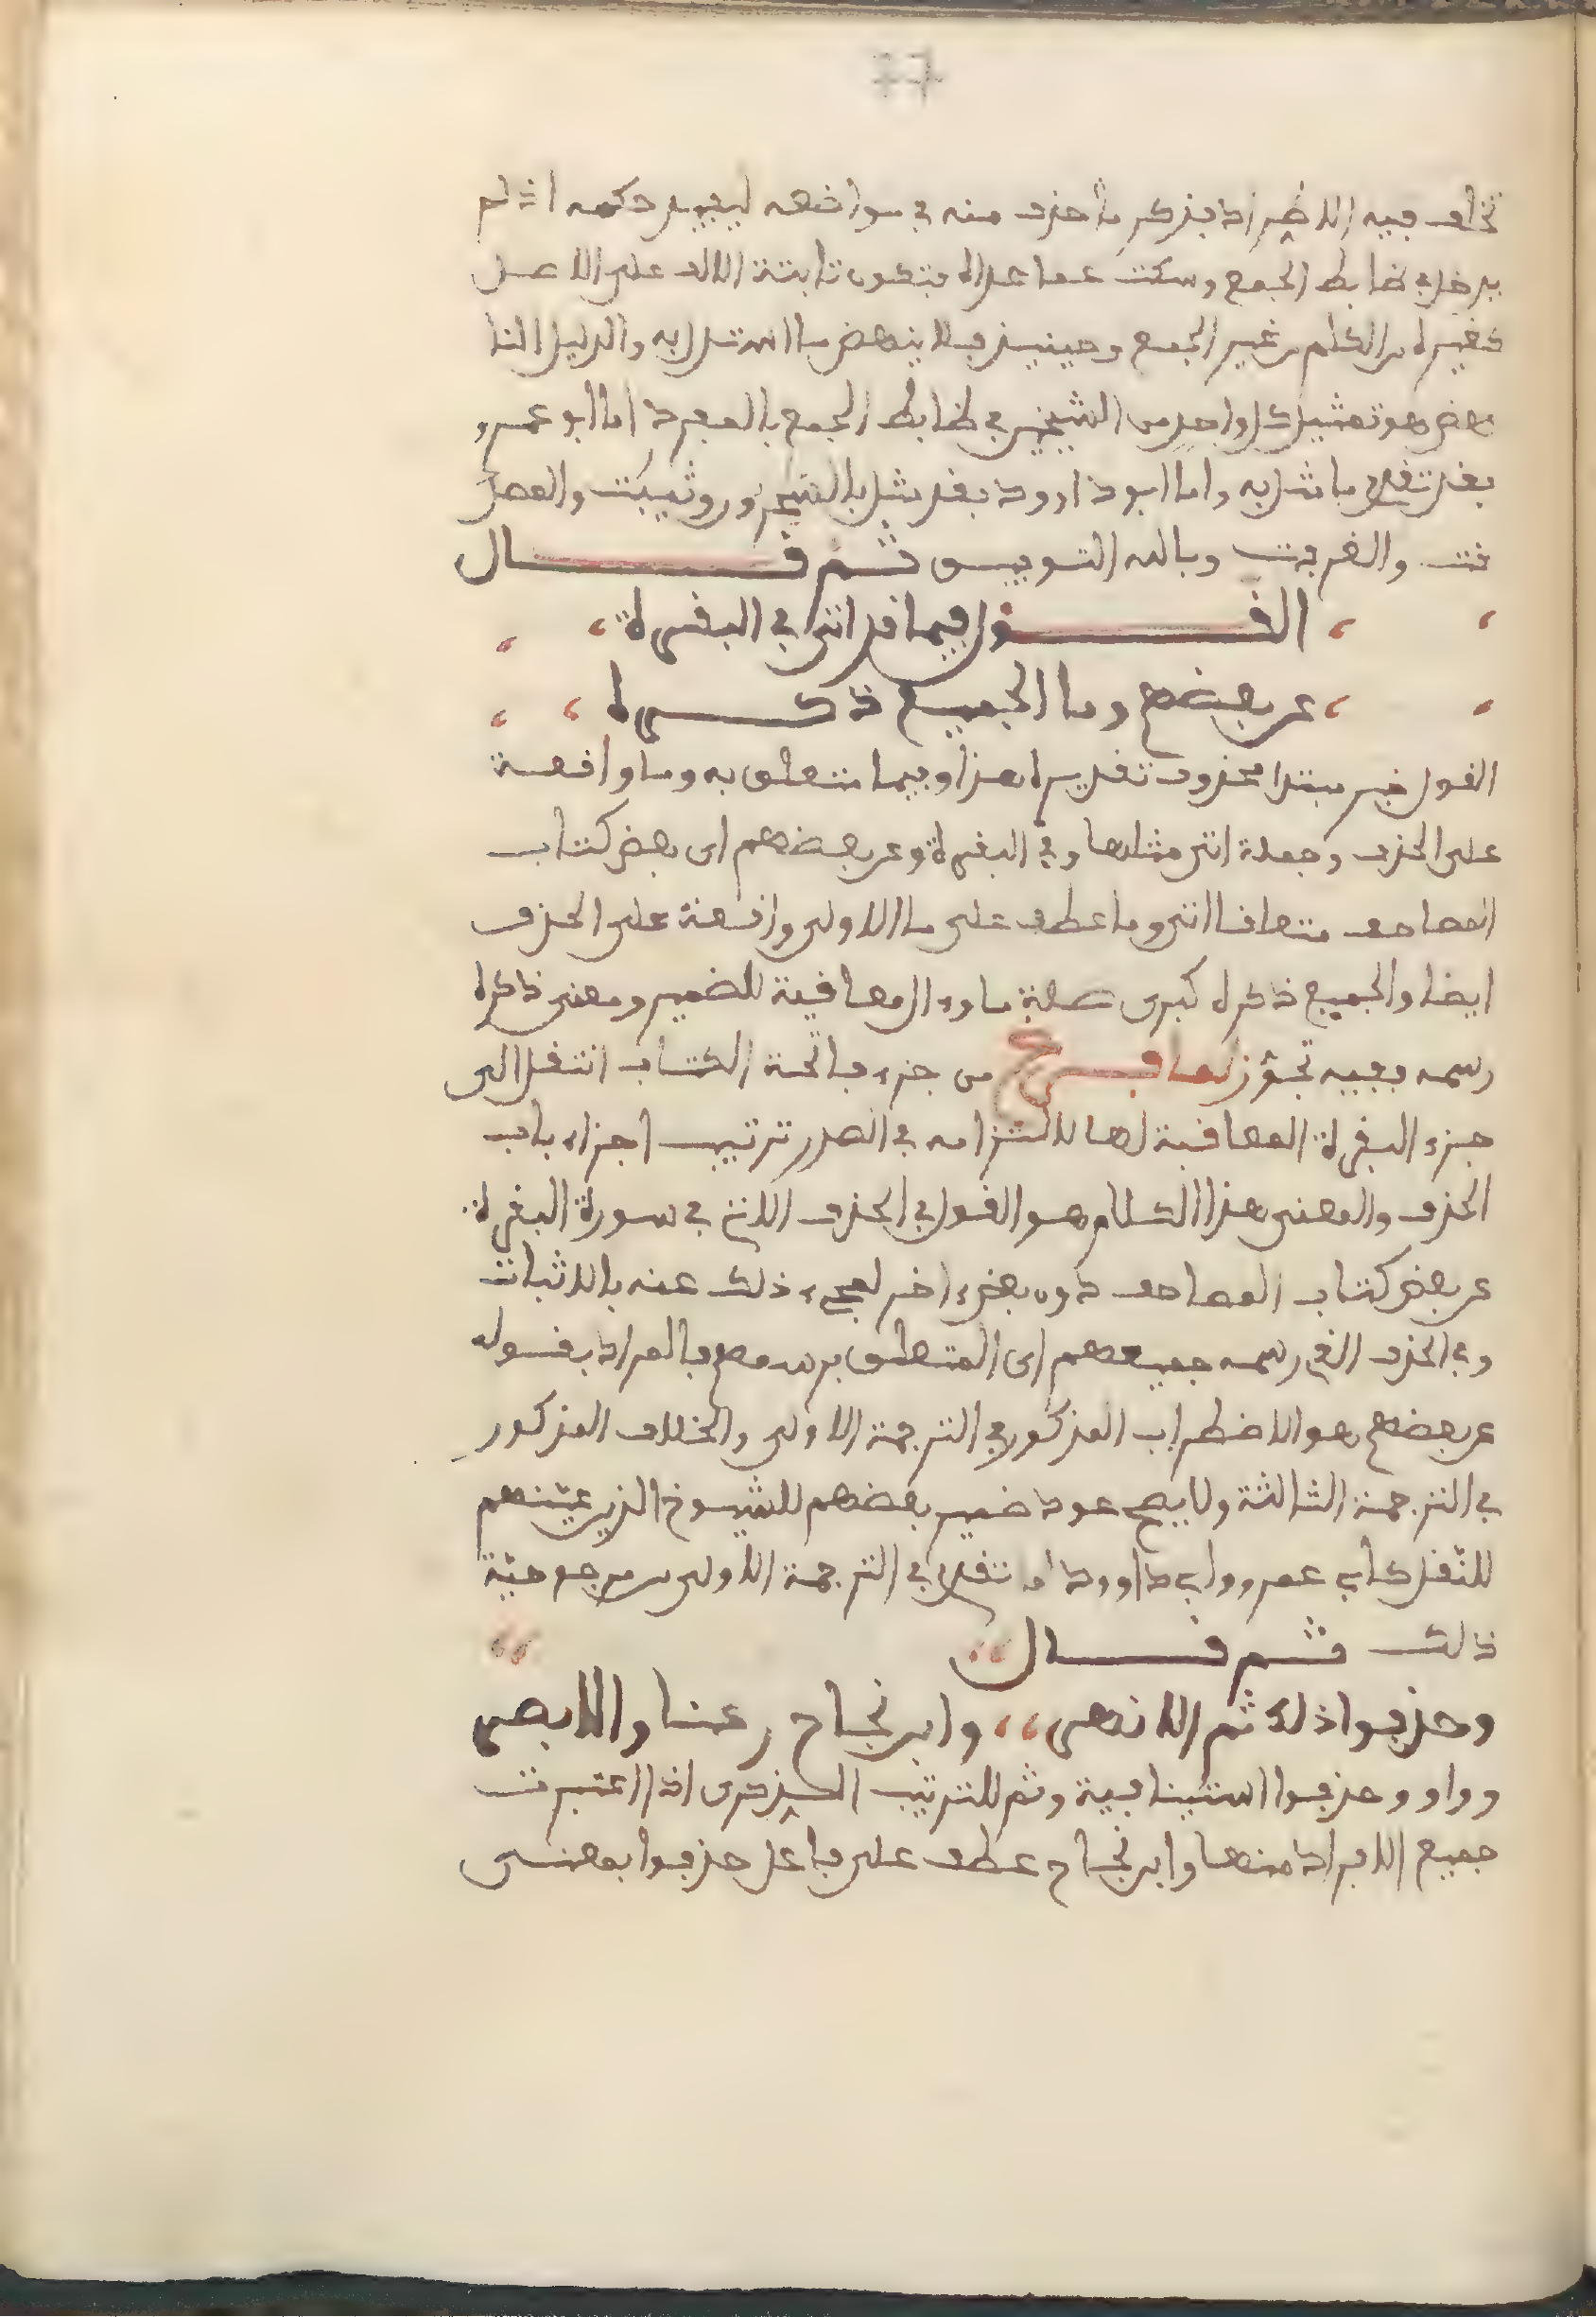 77
تخالف فيه اللاضراد فيذكر ما حذف منه في مواضعه ليفيد حكمه اذ لم
يدخل في ضابط الجمع وسكت عما عداه فتكون ثابتة الالف على الاصل
كغيره من الكلم من غير الجمع وحينيذ فلا ينهض ما استدل به والدليل الناهض
هو تمثيل كل واحد من الشيخين في ضابط الجمع بالمفرد اما ابو عمرو
فقد تقدم ما مثل به واما ابو داوود فقد مثل بالسيحات وروثيبت
والغرفت وبالله التوفيق ثم قال
القول فيما قد اتى في البقرة
عن بعضهم وما الجميع ذكره
القول خبر مبتدا محذوف تقديره هذا وفيما متعلق به وما واقعة
على الحذف وجملة اتى صلتها وفي البقرة وعن بعضهم اى بعض كتاب
المصاحف متعلقا اتى وما عطف على ما الاولى واقعة على الحذف
ايضا والجميع ذكره كبرى صلة ما وال معاقبة للضمير ومعنى ذكره
رسمه ففيه تجوّز لما فرغ من جزء فاتحة الكتاب انتقل الى
جزء البقرة المعاقبة لها لالتزامه في الصدر ترتيب اجزاء باب
الحذف والمعنى هذا الكلام هو القول في الحذف الاتي في سورة البقرة
عن بعض كتاب المصاحف دون بعض اخر لمجيء ذلك عنه بالاثبات
وفي الحذف الذي رسمه جميعهم اى المتعلق برسمهم فالمراد بقوله
عن بعضهم هو الاضطراب المذكور في الترجمة الاولى والخلاف المذكور
في الترجمة الثالثة ولا يصح عود ضمير بعضهم للشيوخ الذين عيّنهم
للنّقل كابي عمرو وابي داوود لما تقدم في الترجمة الاولى من مرجوحيّة
ذلك ثم قال
وحذفوا ذلك ثم الانهر وابن نجاح رعنا والابصر
وواو وحذفوا استينافية وثم للترتيب الذكرى اذا اعتبرت
جميع الافراد منها وابن نجاح عطف على فاعل حذفوا بمعنى